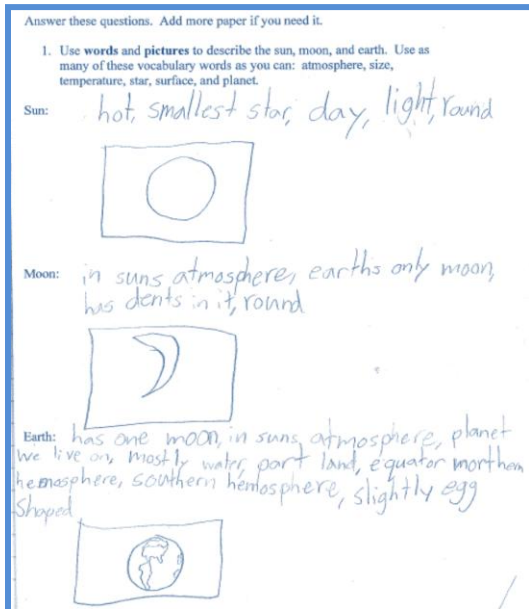 Answer these questions. Add more paper if you need it.
1. Use words and pictures to describe the sun, moon, and earth. Use as
many of these vocabulary words as you can: atmosphere, size,
temperature, star, surface, and planet.
Sun: hot, smallest star, day, light, round
Moon: in suns atmosphere, earths only moon,
has dents in it, round
Earth: has one moon, in suns atmosphere, planet
we live on, mostly water, part land, equator morthern
hemosphere, southern hemosphere, slightly egg
Shaped